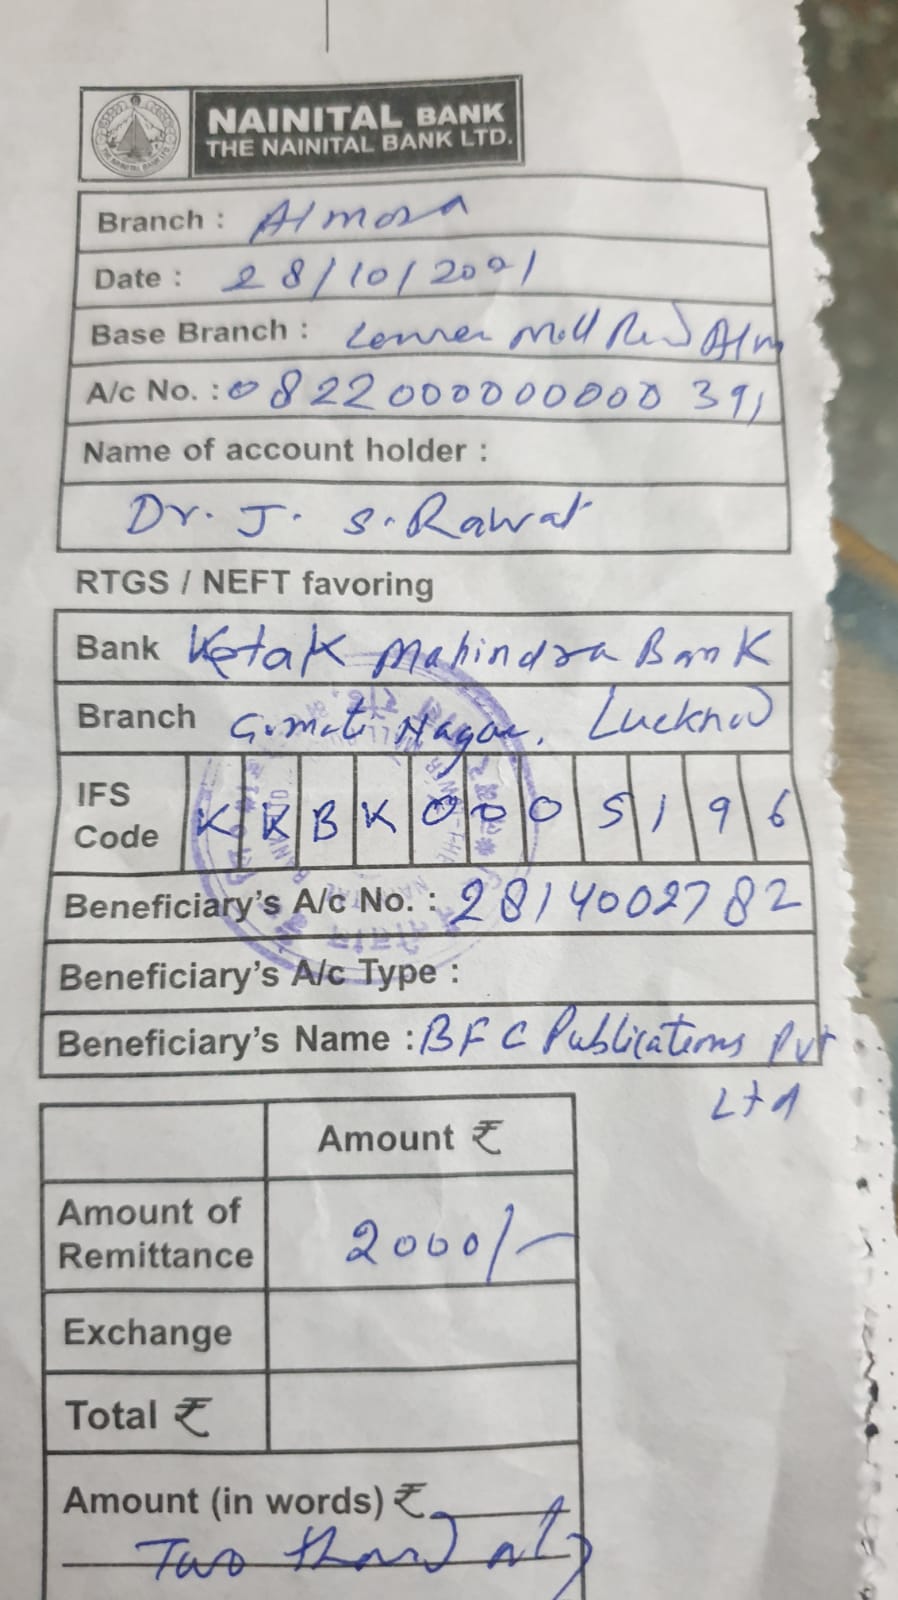 NAINITAL BANK
THE NAINITAL BANK LTD.
Branch : Almora
Date : 28/10/2021
Base Branch : Lower Mall Road Alm
A/c No. : 0822000000000391
Name of account holder :
Dr. J. S. Rawat
RTGS / NEFT favoring
Bank Kotak Mahindra Bank
Branch Gomti Nagar, Lucknow
IFS Code K K B K 0 0 0 5 1 9 6
Beneficiary's A/c No. : 2814002782
Beneficiary's A/c Type :
Beneficiary's Name : BFC Publications Pvt
Ltd
Amount ₹
Amount of Remittance 2000/-
Exchange
Total ₹
Amount (in words) ₹
Two thousand only